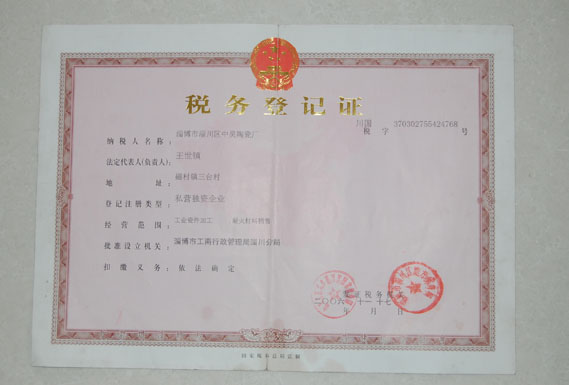 税务登记证
川国
税 字 370302755424768 号
纳税人名称： 淄博市淄川区中昊陶瓷厂
法定代表人(负责人)： 王世镇
地 址： 磁村镇三台村
登记注册类型： 私营独资企业
经营范围： 工业瓷件加工 耐火材料销售
批准设立机关： 淄博市工商行政管理局淄川分局
扣缴义务： 依法确定
发证税务机
二〇〇六 十一 十七
年 月 日
国家税务总局监制